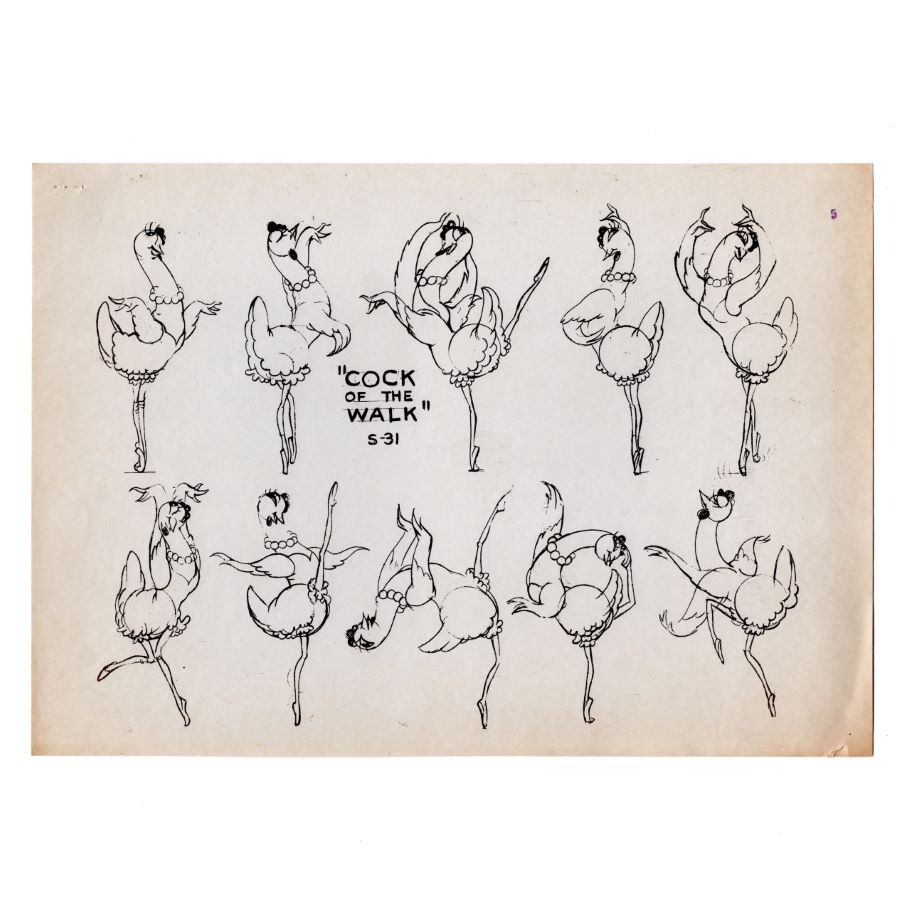 5
"COCK
OF THE
WALK"
S-31